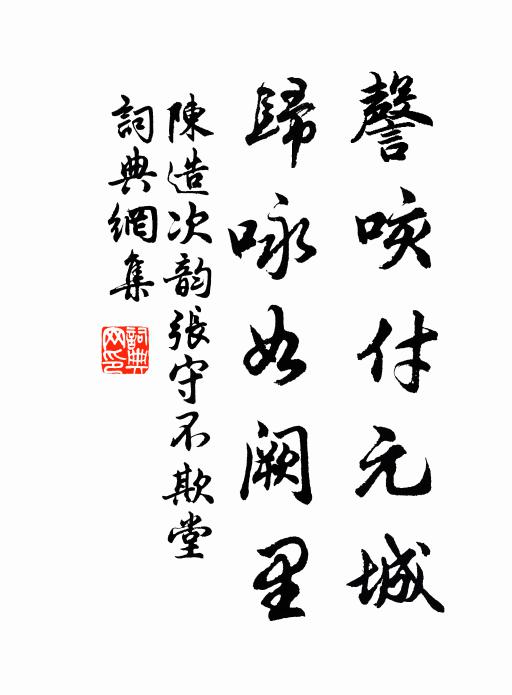 謦咳付元城
歸咏如闕里
陳造次韵張守不欺堂
詞典網集
詞典網印